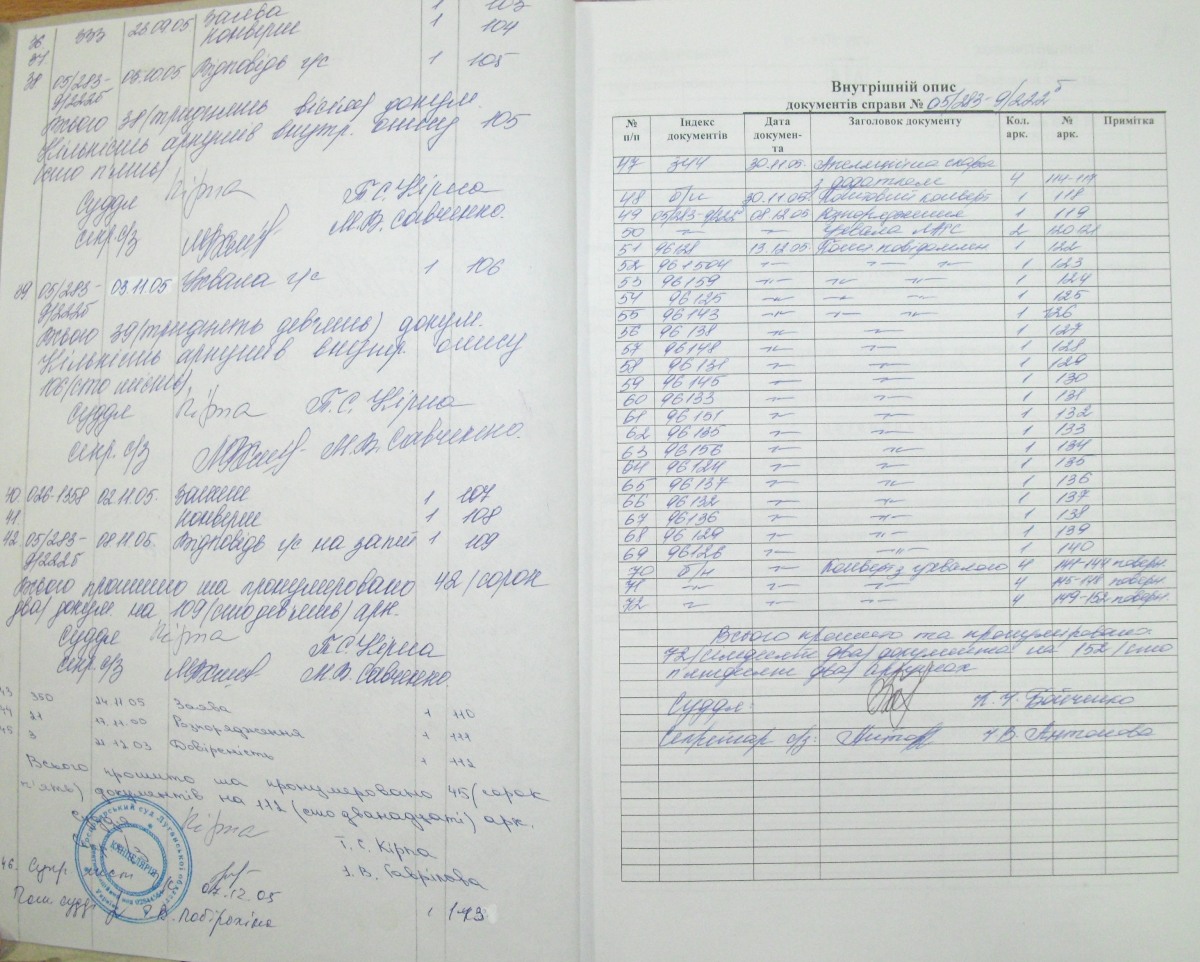 36. 333 23.09.05 Заява 1 103
37. конверт 1 104
38 05/283- 05.10.05 Відповідь г/с 1 105
9/222б
Всього 38 (тридцять вісім) докум.
Кількість аркушів внутр. опису 105
(сто п'ять)
Суддя Кірпа Т.С. Кірпа
секр. с/з М.В. Савченко.
39 05/283- 03.11.05 Ухвала г/с 1 106
9/222б
Всього 39 (тридцять дев'ять) докум.
Кількість аркушів внутр. опису
106 (сто шість)
Суддя Кірпа Т.С. Кірпа
секр. с/з М.В. Савченко.
40 026-1358 02.11.05. Запит 1 107
41. Конверт 1 108
42. 05/283- 08.11.05. Відповідь г/с на запит 1 109
9/222б
Всього прошито та пронумеровано 42 (сорок
два) докум на 109 (сто дев'ять) арк.
Суддя Кірпа Т.С. Кірпа
секр. с/з М.В. Савченко
43 350 24.11.05 Заява 1 110
44 21 Розпорядження 1 111
45 3 Довіреність 1 112
Всього прошито та пронумеровано 45 (сорок
п'ять) документів на 112 (сто дванадцять) арк.
Суддя Кірпа Т.С. Кірпа
46. Супр. лист 07.12.05
Пом. судді 1 113
КАНЦЕЛЯРІЯ
Внутрішній опис
документів справи № 05/283-9/222б
№ п/п Індекс документів Дата докумен-та Заголовок документу Кол. арк. № арк. Примітка
47 344 30.11.05. Апеляційна скарга
з додатком 4 114-117
48 б/н 30.11.05. Поштовий конверт 1 118
49 05/283-9/222б 08.12.05 Розпорядження 1 119
50 –"– –"– Ухвала ЛАГС 2 120-121
51 96128 13.12.05 Пошт. повідомлен 1 122
52 961504 –"– –"– –"– 1 123
53 96159 –"– –"– –"– 1 124
54 96125 –"– –"– –"– 1 125
55 96143 –"– –"– –"– 1 126
56 96138 –"– –"– 1 127
57 96148 –"– –"– 1 128
58 96131 –"– –"– 1 129
59 96145 –"– –"– 1 130
60 96133 –"– –"– 1 131
61 96151 –"– –"– 1 132
62 96135 –"– –"– 1 133
63 96156 –"– –"– 1 134
64 96124 –"– –"– 1 135
65 96137 –"– –"– 1 136
66 96132 –"– –"– 1 137
67 96136 –"– –"– 1 138
68 96129 –"– –"– 1 139
69 96126 –"– –"– 1 140
70 б/н –"– Конверт з ухвалою 4 141-144 поверн.
71 –"– –"– –"– 4 145-148 поверн.
72 –"– –"– –"– 4 149-152 поверн.
Всього прошито та пронумеровано
72 (сімдесят два) документа на 152 (сто
п'ятдесят два) аркушах
Суддя: К.І. Бойченко
Секретар с/з: І.В. Антонова